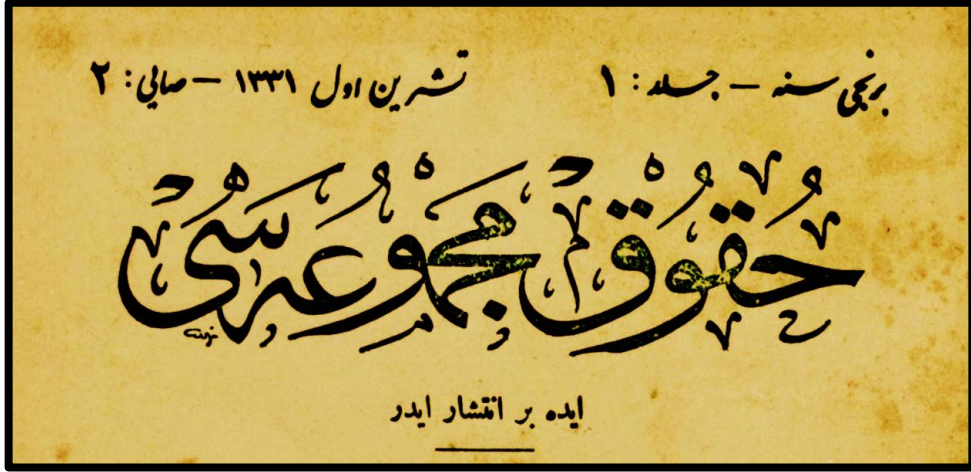 برنجی سنه — جلد : ١ تشرین اول ١٣٣١ — صایی : ٢
حقوق مجموعه سی
ایده بر انتشار ایدر